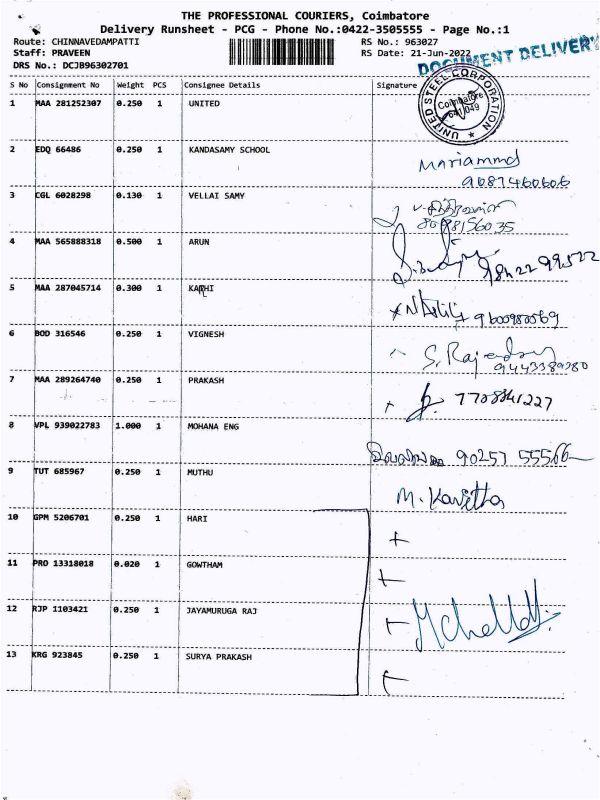 THE PROFESSIONAL COURIERS, Coimbatore
Delivery Runsheet - PCG - Phone No.:0422-3505555 - Page No.:1
Route: CHINNAVEDAMPATTI RS No.: 963027
Staff: PRAVEEN RS Date: 21-Jun-2022
DRS No.: DCJB96302701
DOCUMENT DELIVERY
S No Consignment No Weight PCS Consignee Details Signature
UNITED STEEL CORPORATION
Coimbatore
641 049
1 MAA 281252307 0.250 1 UNITED
2 EDQ 66486 0.250 1 KANDASAMY SCHOOL
Mariammal
9087460606
3 CGL 6028298 0.130 1 VELLAI SAMY
4 MAA 565888318 0.500 1 ARUN
5 MAA 287045714 0.300 1 KARHI
9600980069
6 BOD 316546 0.250 1 VIGNESH
S. Rajendran
9443389280
7 MAA 289264740 0.250 1 PRAKASH
8 VPL 939022783 1.000 1 MOHANA ENG
90257 55566
9 TUT 685967 0.250 1 MUTHU
M. Kavitha
10 GPM 5206701 0.250 1 HARI
11 PRO 13318018 0.020 1 GOWTHAM
12 RJP 1103421 0.250 1 JAYAMURUGA RAJ
13 KRG 923845 0.250 1 SURYA PRAKASH